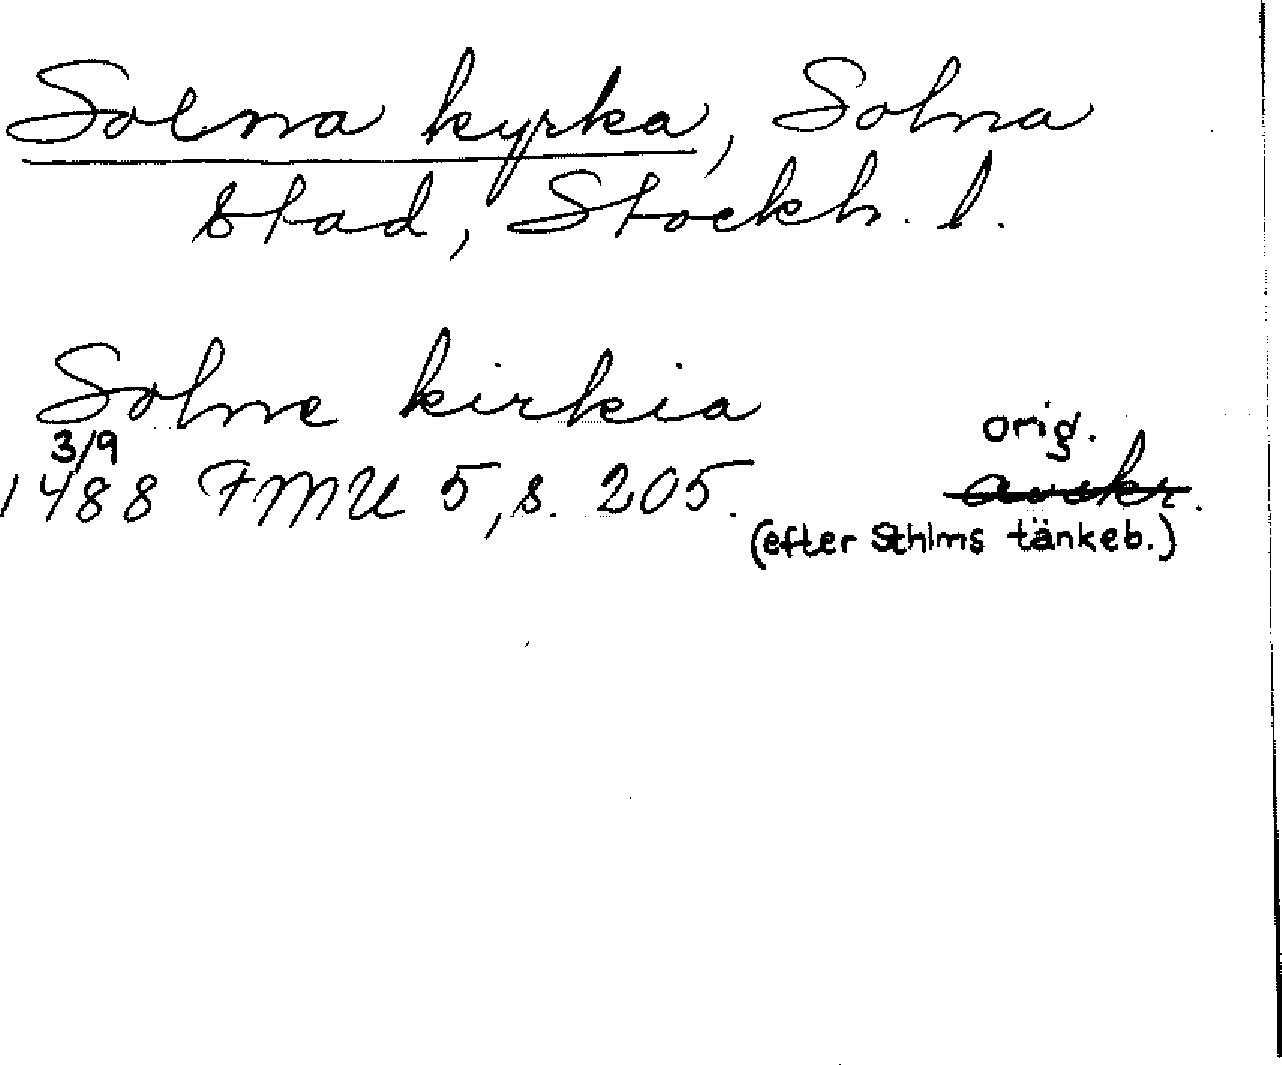 Solna kyrka, Solna
stad, Stockh. l.
Solne kirkia
3/9 orig.
1488 FMU 5, s. 205. avskr.
(efter Sthlms tänkeb.)